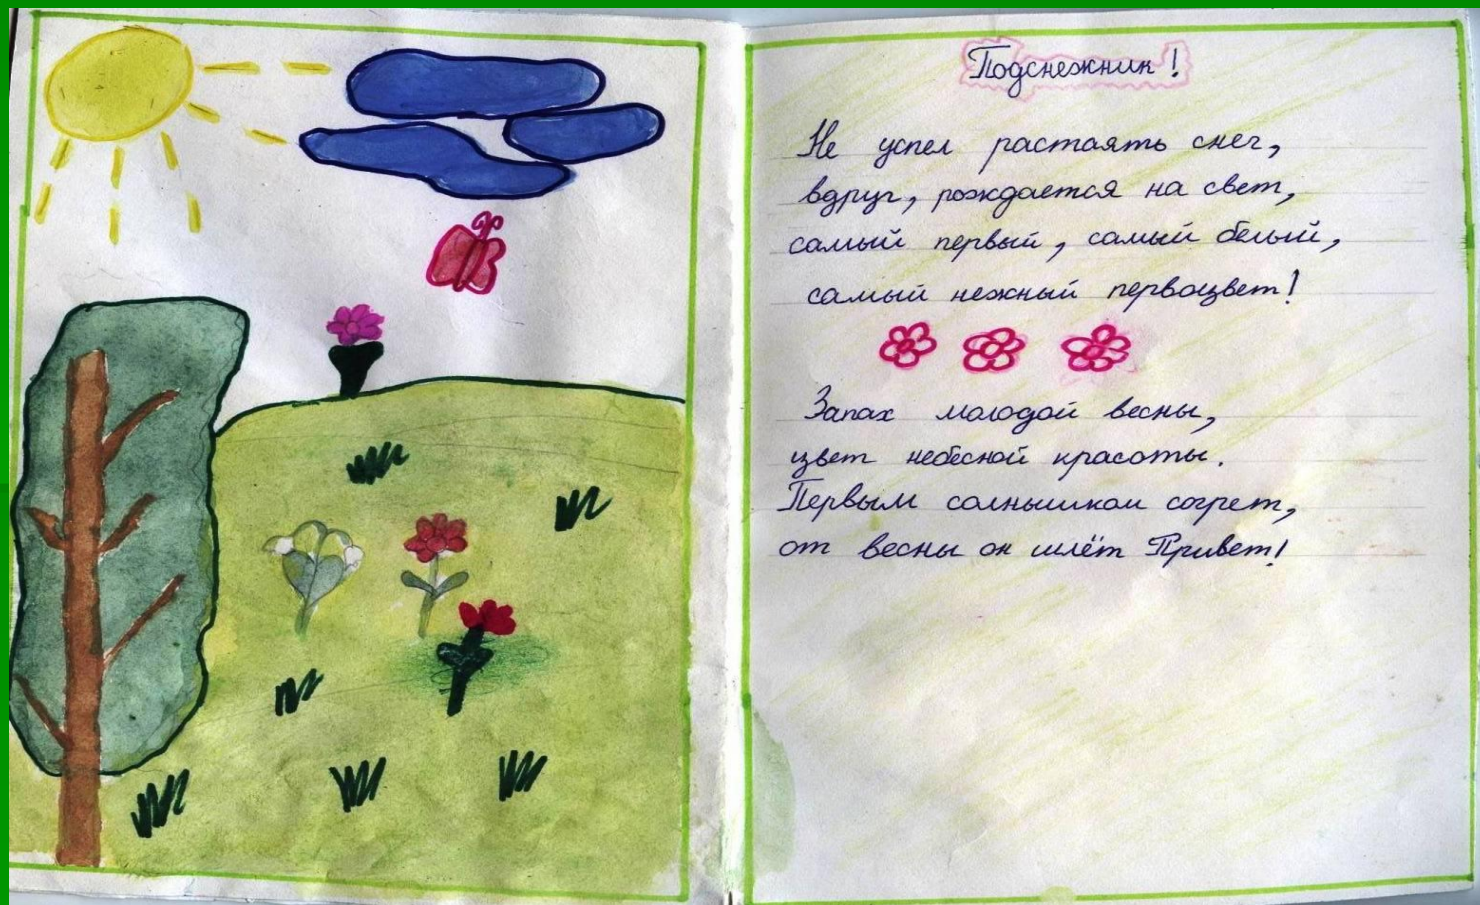 Подснежник!
Не успел растаять снег,
вдруг, рождается на свет,
самый первый, самый белый,
самый нежный первоцвет!
Запах молодой весны,
цвет небесной красоты.
Первым солнышком согрет,
от весны он шлёт Привет!